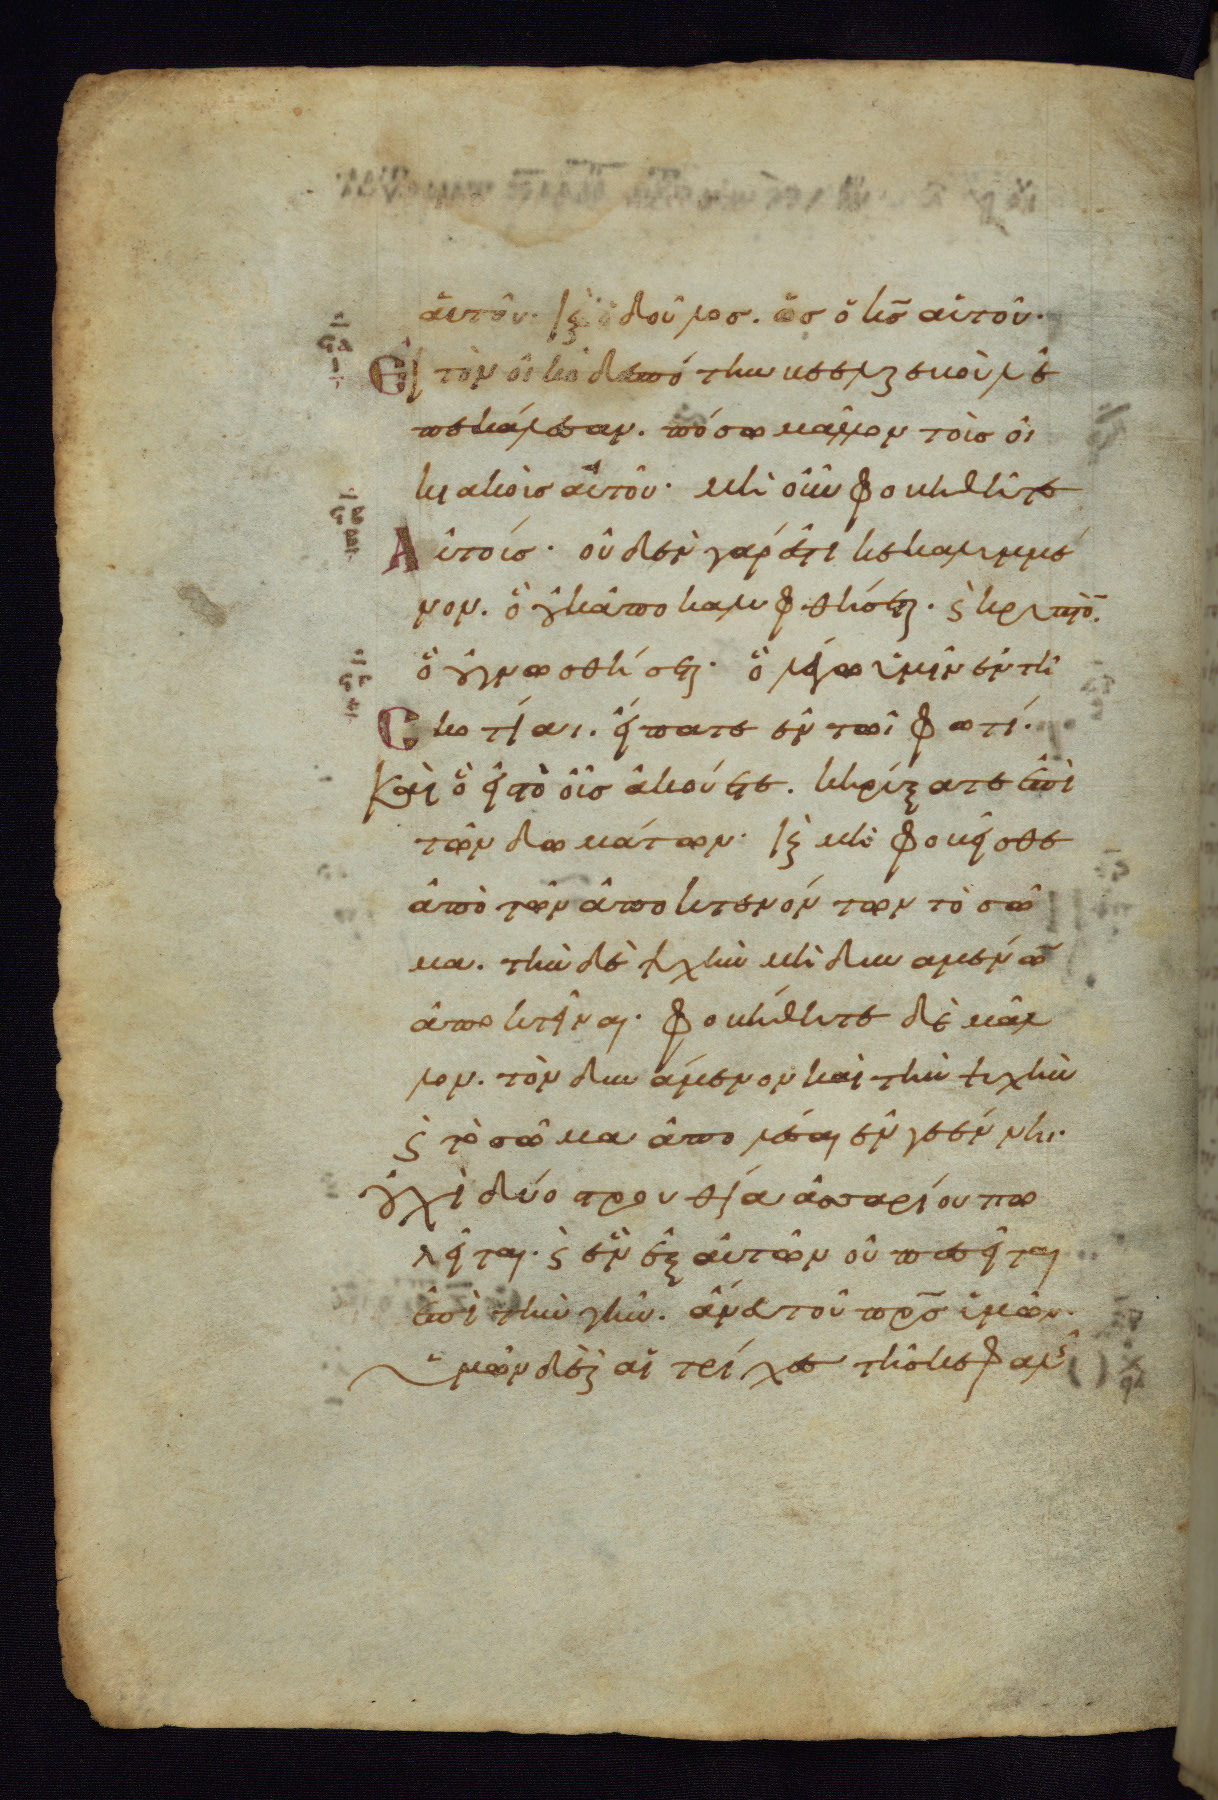 αὐτοῦ· ϗ ὁ δοῦλος. ὡς ὁ κ̅ς̅ αὐτοῦ·
ϟα Εἰ τὸν οἰκοδεσπότην βεελζεβοὺλ ἐ
πεκάλεσαν. πόσω μᾶλλον τοῖς οἰ
κιακοῖς αὐτοῦ· μὴ οὖν φοβηθῆτε
ϟβ Αὐτοίς· οὐδὲν γάρ ἐστι κεκαλυμμέ
νον. ὃ οὐκ ἀποκαλυφθήσεται. ϗ κρυπτὸ̅.
ϟγ ὃ οὐ γνωσθήσεται· ὃ λέγω ὑμῖν ἐν τῆ
Σκοτίαι. εἴπατε ἐν τῶι φωτί.
Καὶ ὃ εἰς τὸ οὖς ἀκούετε. κηρύξατε ἐπὶ
τῶν δωμάτων· ϗ μὴ φοβεῖσθε
ἀπὸ τῶν ἀποκτενόντων τὸ σῶ
μα. τὴν δὲ ψυχὴν μὴ δυναμένω̅
ἀποκτεῖναι· φοβήθητε δὲ μᾶλ
λον. τὸν δυνάμενον καὶ τὴν ψυχὴν
ϗ τὸ σῶμα ἀπολέσαι ἐν γεέννη.
οὐχὶ δύο στρουθία ἀσσαρίου πω
λεῖται· ϗ ἓν ἐξ αὐτῶν οὐ πεσεῖται
ἐπὶ τὴν γῆν. ἄνευ τοῦ πρ̅ς̅ ὑμῶν.
ὑμῶν δὲ ϗ αἱ τρίχες τῆς κεφαλῆς